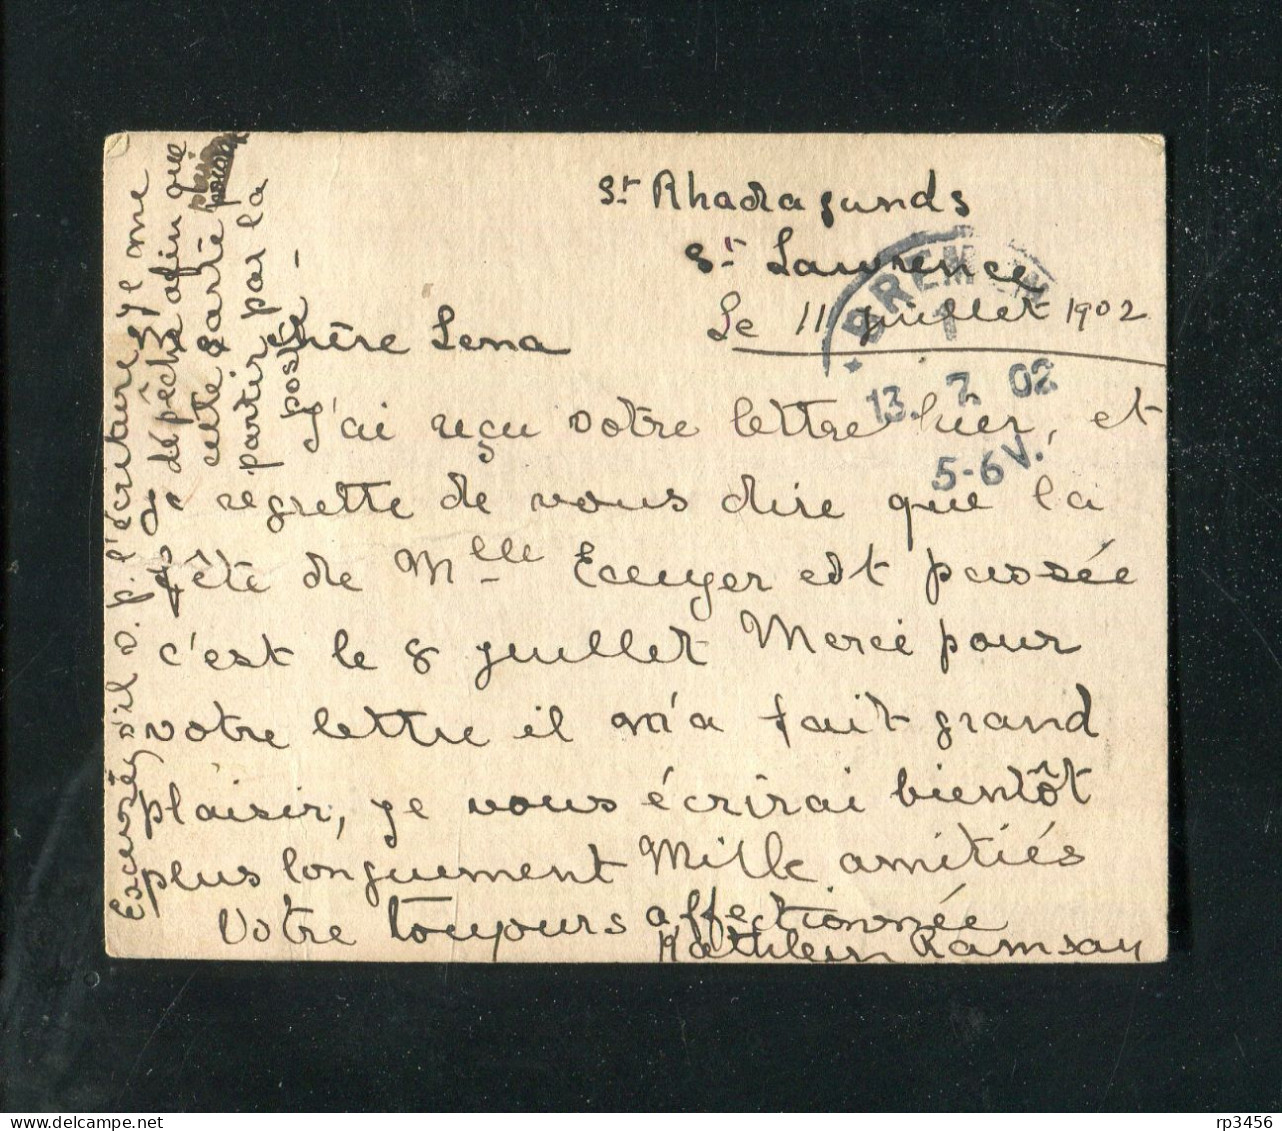 St Rhadagunds
St Lawrence
Le 11 juillet 1902
Chère Lena
J'ai reçu votre lettre hier, et
je regrette de vous dire que la
fête de Mlle Ecuyer est passée
c'est le 8 juillet Merci pour
votre lettre il m'a fait grand
plaisir, je vous écrirai bientôt
plus longuement Mille amitiés
Votre toujours affectionnée
Kathleen Ramsay
Excusez s'il v. p. l'écriture je me
dépêche afin que
cette carte puisse
partir par la
poste -
BREMEN
1
13. 7. 02
5-6 V.
rp3456